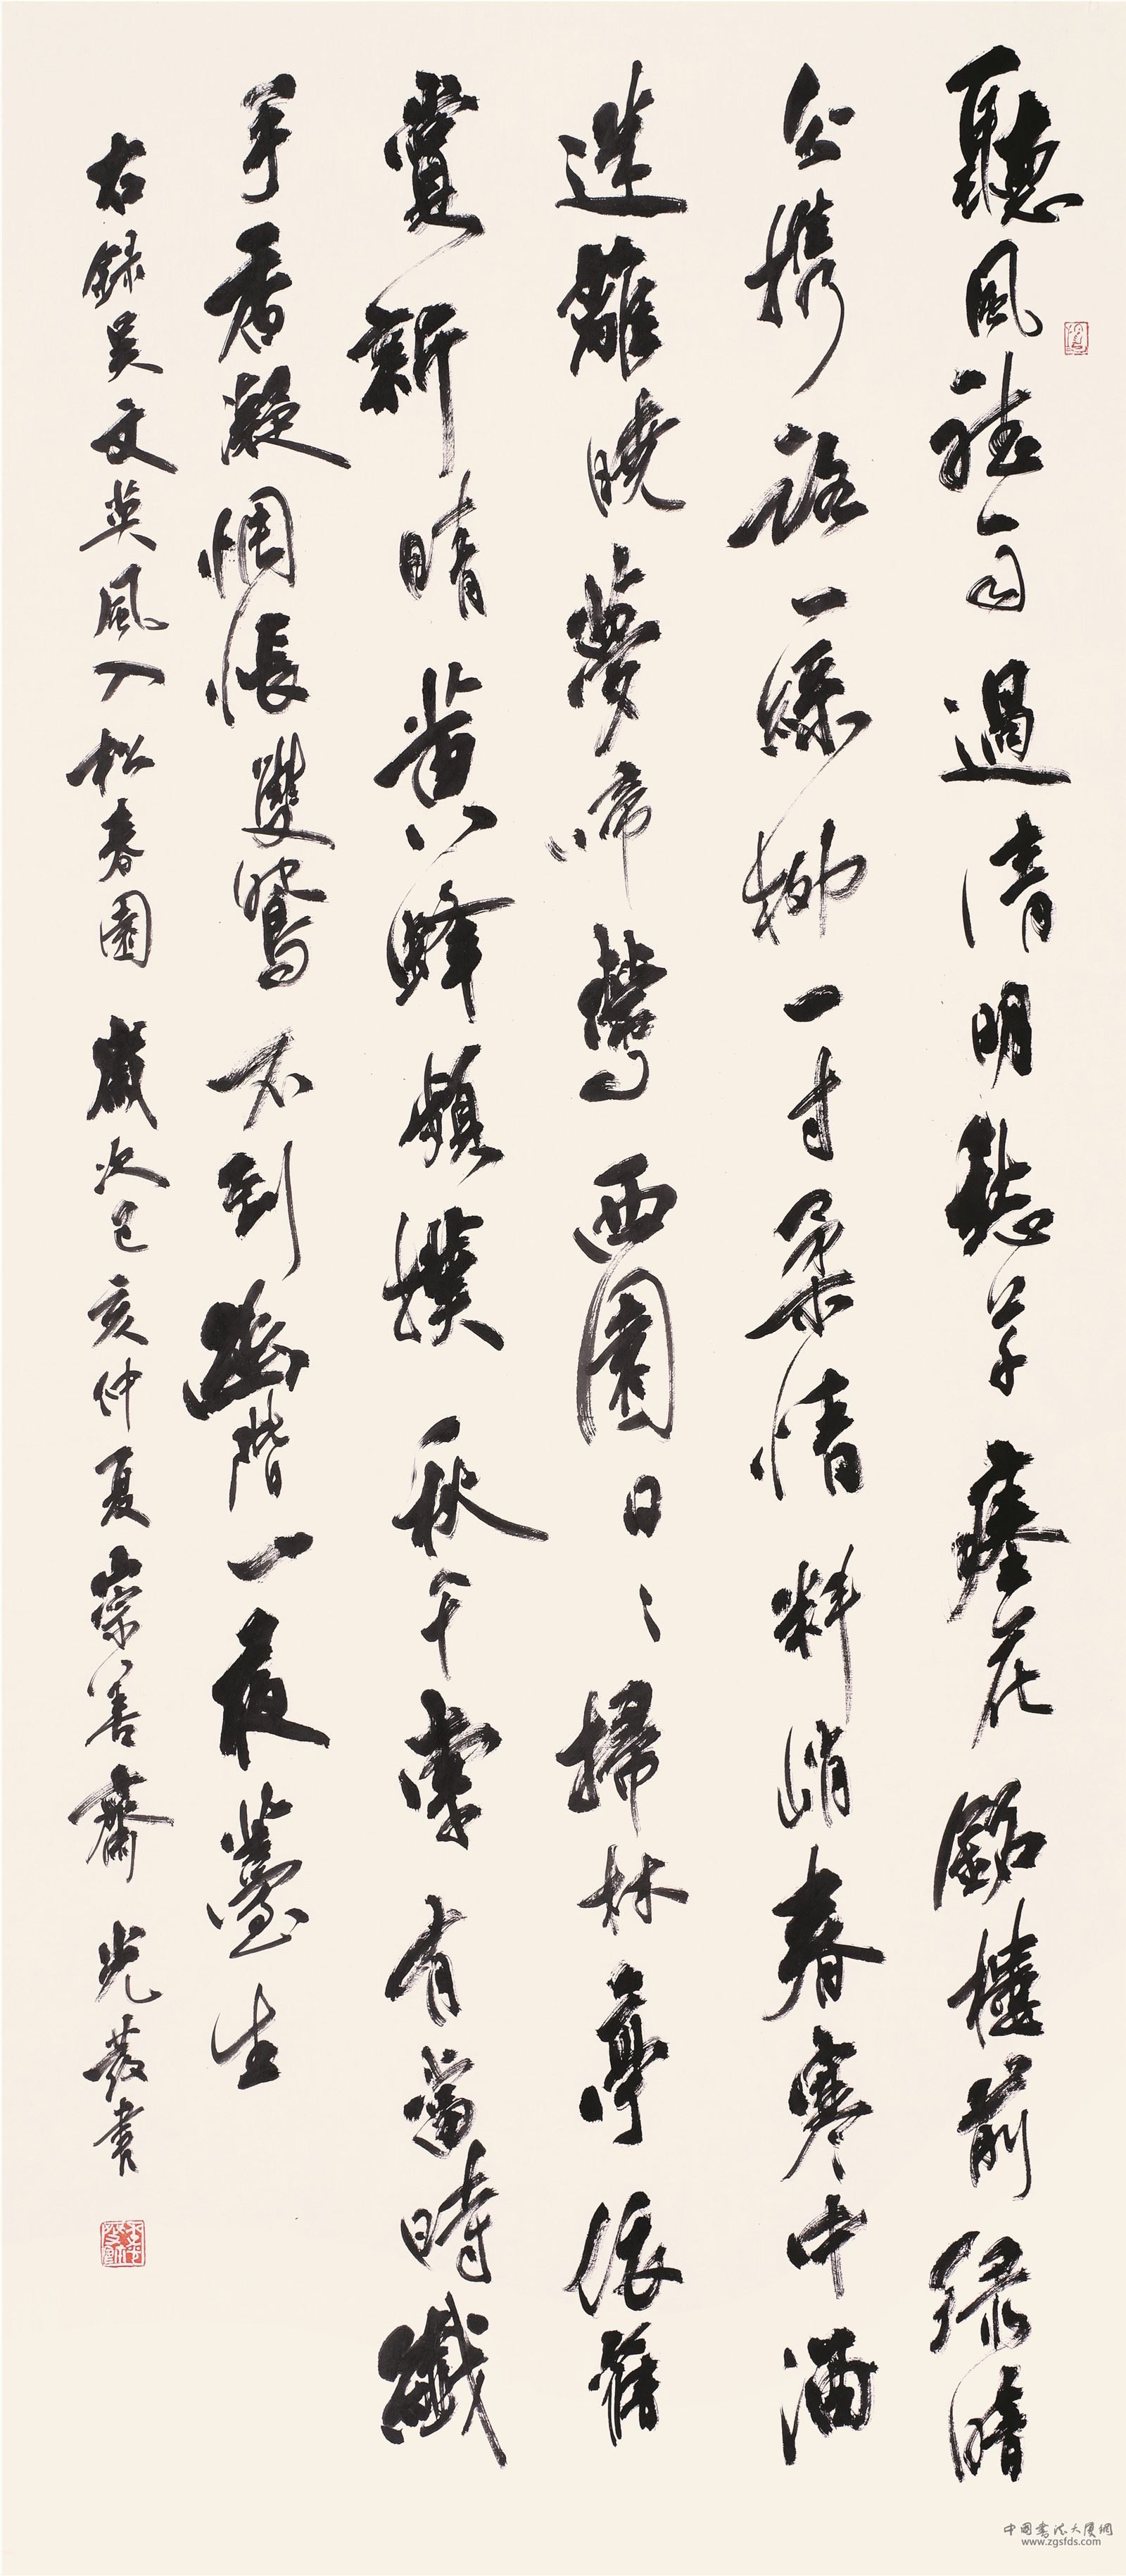 聽風聽雨過清明愁草瘞花銘樓前綠暗
分携路一絲柳一寸柔情料峭春寒中酒
迷離曉夢啼鶯西園日〻掃林亭依舊
賞新晴黃蜂頻撲秋千索有當時纖
手香凝惆悵雙鴛不到幽階一夜薹生
右録吳文英風入松春園 歲次己亥仲夏崇善齋 光發書
中国書法大厦網
www.zgsfds.com